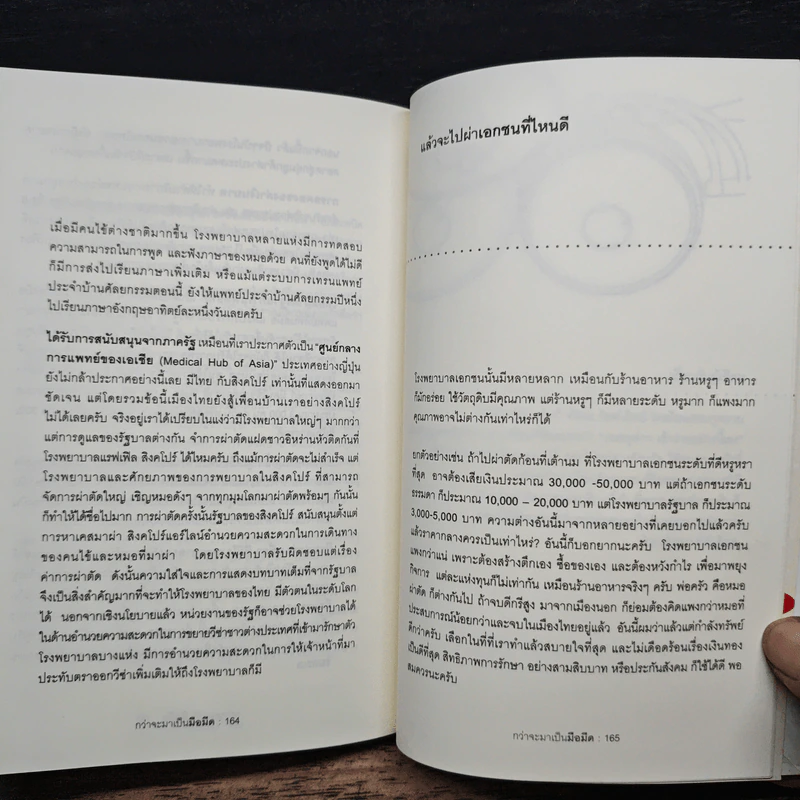 เมื่อมีคนไข้ต่างชาติมากขึ้น โรงพยาบาลหลายแห่งมีการทดสอบ
ความสามารถในการพูด และฟังภาษาของหมอด้วย คนที่ยังพูดได้ไม่ดี
ก็มีการส่งไปเรียนภาษาเพิ่มเติม หรือแม้แต่ระบบการเทรนแพทย์
ประจำบ้านศัลยกรรมตอนนี้ ยังให้แพทย์ประจำบ้านศัลยกรรมปีหนึ่ง
ไปเรียนภาษาอังกฤษอาทิตย์ละหนึ่งวันเลยครับ
ได้รับการสนับสนุนจากภาครัฐ เหมือนที่เราประกาศตัวเป็น "ศูนย์กลาง
การแพทย์ของเอเชีย (Medical Hub of Asia)" ประเทศอย่างญี่ปุ่น
ยังไม่กล้าประกาศอย่างนี้เลย มีไทย กับสิงคโปร์ เท่านั้นที่แสดงออกมา
ชัดเจน แต่โดยรวมข้อนี้เมืองไทยยังสู้เพื่อนบ้านเราอย่างสิงคโปร์
ไม่ได้เลยครับ จริงอยู่เราได้เปรียบในแง่ว่ามีโรงพยาบาลใหญ่ๆ มากกว่า
แต่การดูแลของรัฐบาลต่างกัน จำการผ่าตัดแฝดชาวอิหร่านหัวติดกันที่
โรงพยาบาลแรฟเฟิล สิงคโปร์ ได้ไหมครับ ถึงแม้การผ่าตัดจะไม่สำเร็จ แต่
โรงพยาบาลและศักยภาพของการพยาบาลในสิงคโปร์ ที่สามารถ
จัดการผ่าตัดใหญ่ เชิญหมอดังๆ จากทุกมุมโลกมาผ่าตัดพร้อมๆ กันนั้น
ก็ทำให้ได้ชื่อไปมาก การผ่าตัดครั้งนั้นรัฐบาลของสิงคโปร์ สนับสนุนตั้งแต่
การหาเคสมาผ่า สิงคโปร์แอร์ไลน์อำนวยความสะดวกในการเดินทาง
ของคนไข้และหมอที่มาผ่า โดยโรงพยาบาลรับผิดชอบแต่เรื่อง
ค่าการผ่าตัด ดังนั้นความใส่ใจและการแสดงบทบาทเต็มที่จากรัฐบาล
จึงเป็นสิ่งสำคัญมากที่จะทำให้โรงพยาบาลของไทย มีตัวตนในระดับโลก
ได้ นอกจากเชิงนโยบายแล้ว หน่วยงานของรัฐก็อาจช่วยโรงพยาบาลได้
ในด้านอำนวยความสะดวกในการขยายวีซ่าชาวต่างประเทศที่เข้ามารักษาตัว
โรงพยาบาลบางแห่ง มีการอำนวยความสะดวกในการให้เจ้าหน้าที่มา
ประทับตราออกวีซ่าเพิ่มเติมให้ถึงโรงพยาบาลก็มี
กว่าจะมาเป็นมือมีด : 164
แล้วจะไปผ่าเอกชนที่ไหนดี
โรงพยาบาลเอกชนนั้นมีหลายหลาก เหมือนกับร้านอาหาร ร้านหรูๆ อาหาร
ก็มักอร่อย ใช้วัตถุดิบมีคุณภาพ แต่ร้านหรูๆ ก็มีหลายระดับ หรูมาก ก็แพงมาก
คุณภาพอาจไม่ต่างกันเท่าไหร่ก็ได้
ยกตัวอย่างเช่น ถ้าไปผ่าตัดก้อนที่เต้านม ที่โรงพยาบาลเอกชนระดับที่ดีหรูหรา
ที่สุด อาจต้องเสียเงินประมาณ 30,000 -50,000 บาท แต่ถ้าเอกชนระดับ
ธรรมดา ก็ประมาณ 10,000 – 20,000 บาท แต่โรงพยาบาลรัฐบาล ก็ประมาณ
3,000-5,000 บาท ความต่างอันนี้มาจากหลายอย่างที่เคยบอกไปแล้วครับ
แล้วราคากลางควรเป็นเท่าไหร่? อันนี้ก็บอกยากนะครับ โรงพยาบาลเอกชน
แพงกว่าแน่ เพราะต้องสร้างตึกเอง ซื้อของเอง และต้องหวังกำไร เพื่อมาพยุง
กิจการ แต่ละแห่งทุนก็ไม่เท่ากัน เหมือนร้านอาหารจริงๆ ครับ พ่อครัว คือหมอ
ผ่าตัด ก็ต่างกันไป ถ้าจบดีกรีสูง มาจากเมืองนอก ก็ย่อมต้องคิดแพงกว่าหมอที่
ประสบการณ์น้อยกว่าและจบในเมืองไทยอยู่แล้ว อันนี้ผมว่าแล้วแต่กำลังทรัพย์
ดีกว่าครับ เลือกในที่ที่เราทำแล้วสบายใจที่สุด และไม่เดือดร้อนเรื่องเงินทอง
เป็นดีที่สุด สิทธิภาพการรักษา อย่างสามสิบบาท หรือประกันสังคม ก็ใช้ได้ดี พอ
สมควรนะครับ
กว่าจะมาเป็นมือมีด : 165